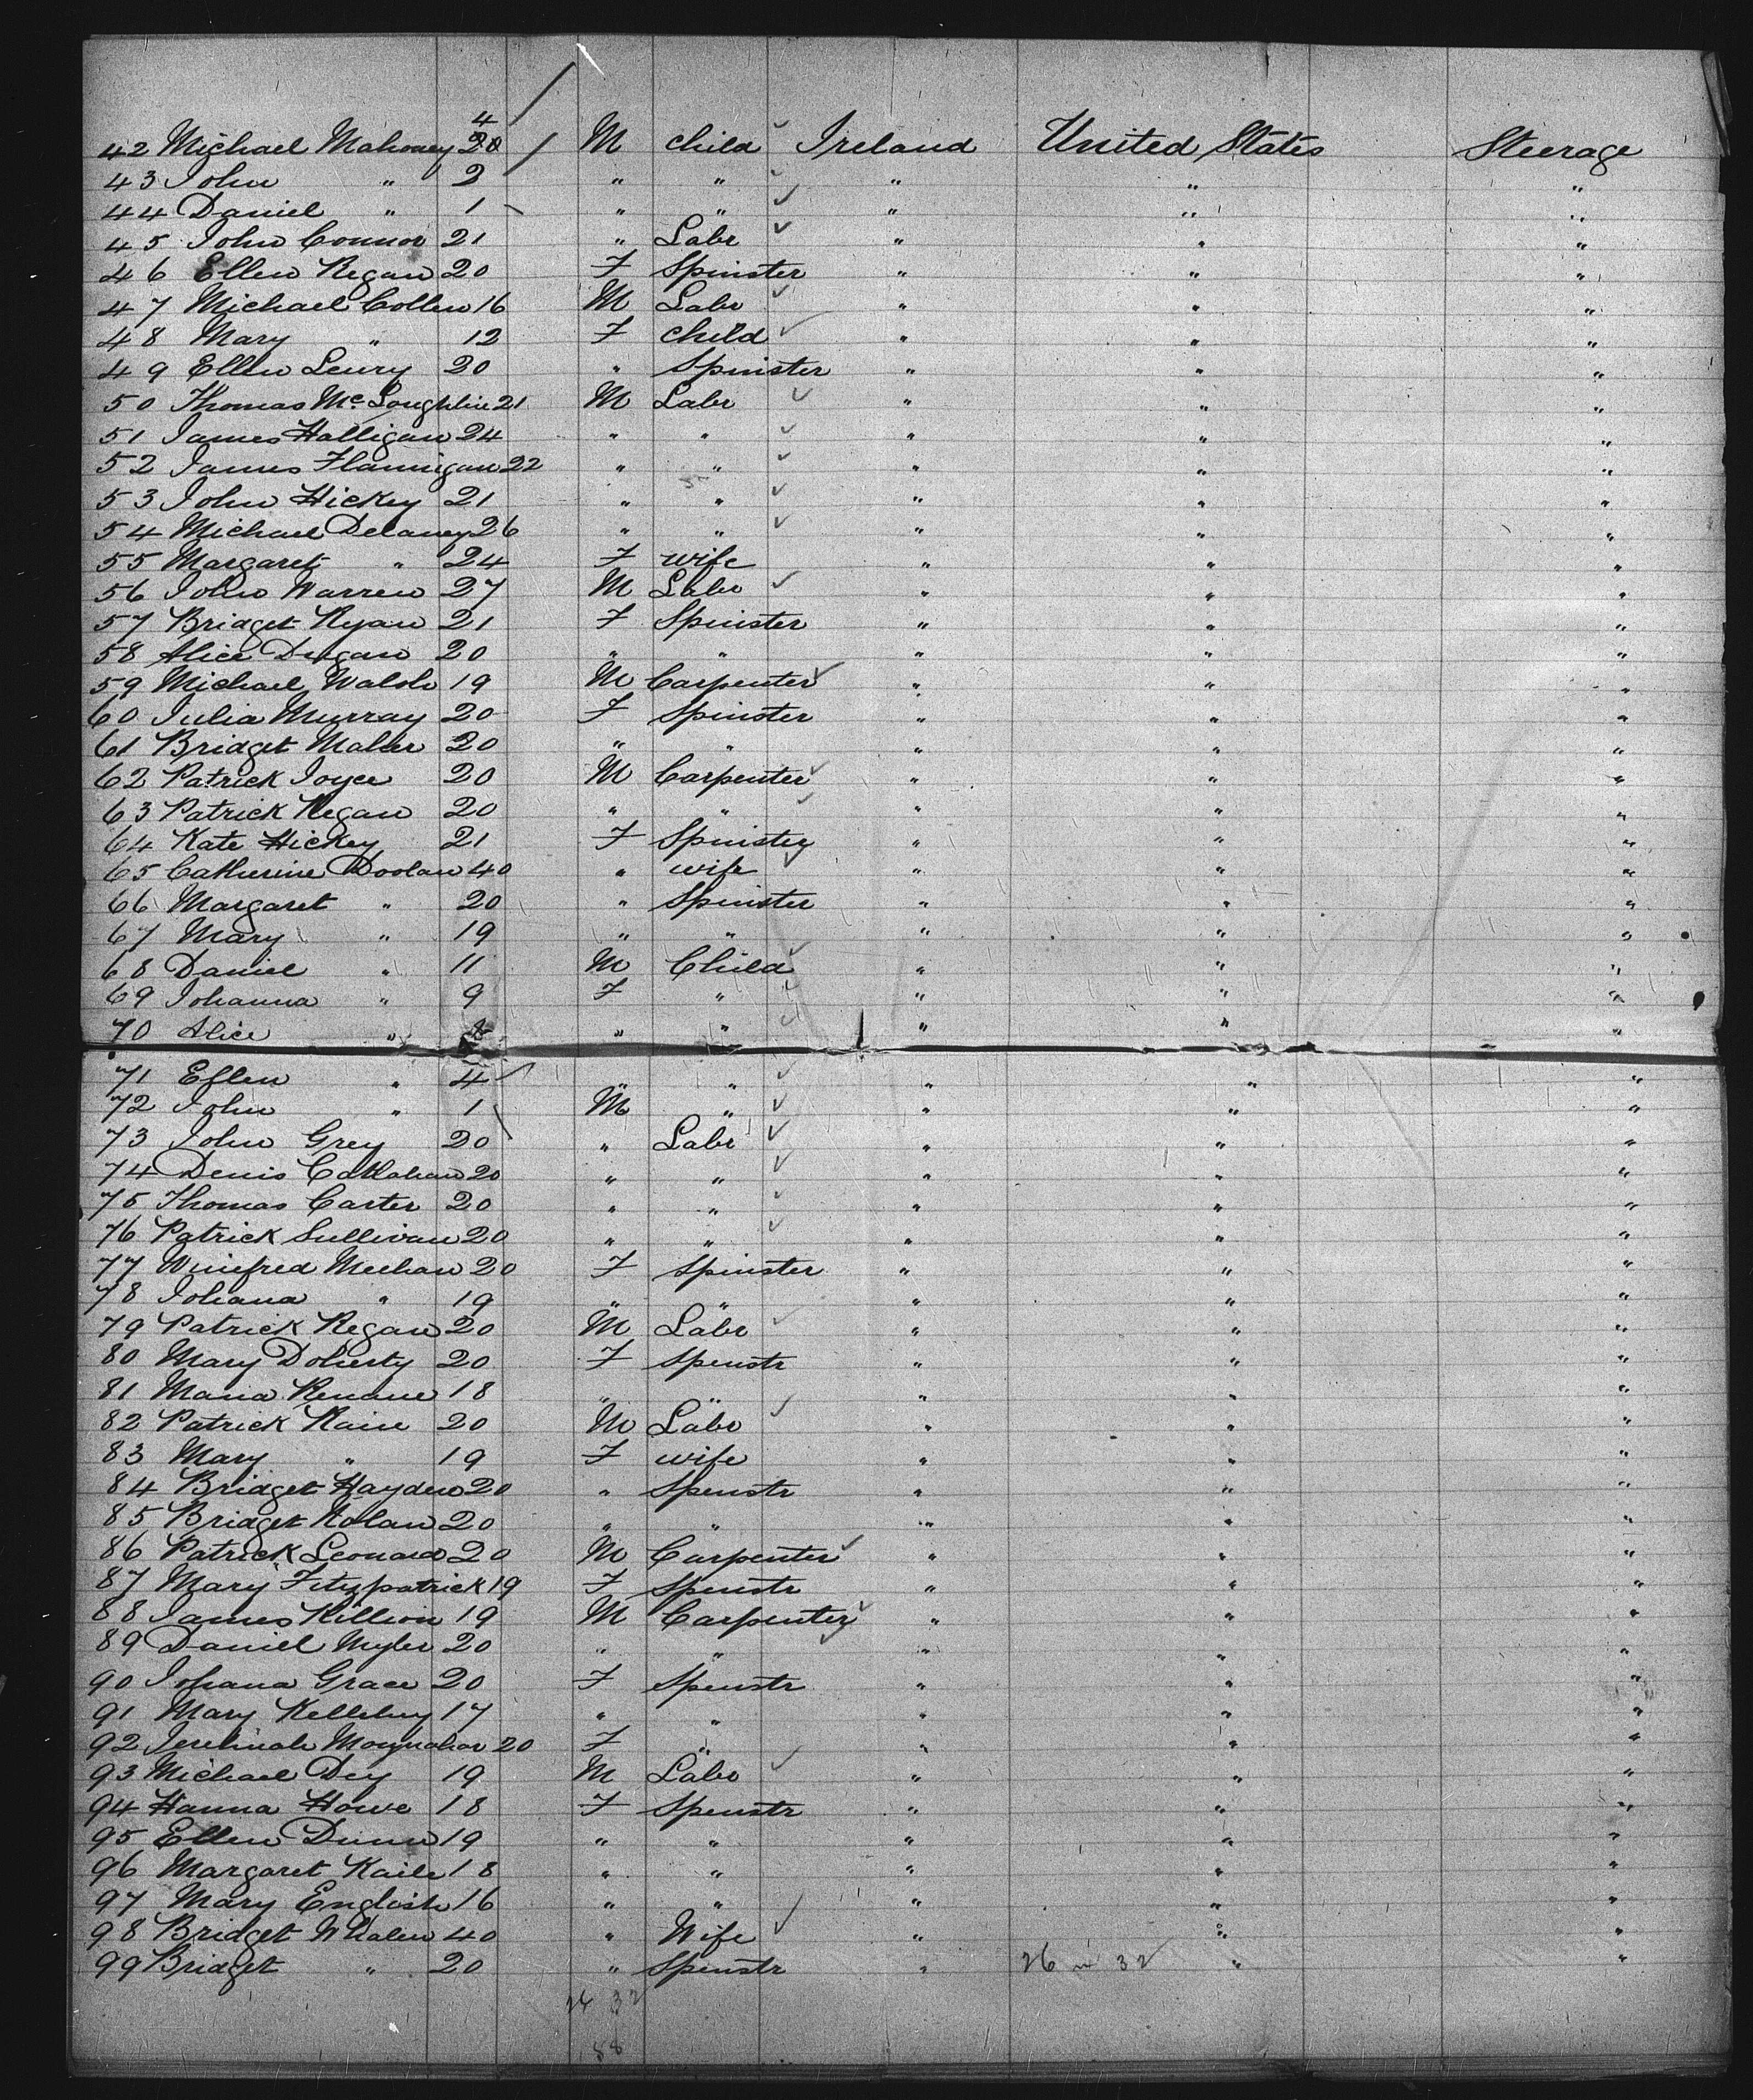 42 Michael Mahoney 4 20 M child Ireland United States Steerage
43 John " 2 " " " " "
44 Daniel " 1 " " " " "
45 John Connor 21 " Labr " " "
46 Ellen Regan 20 F Spinster " " "
47 Michael Collen 16 M Labr " " "
48 Mary " 12 F child " " "
49 Ellen Leury 20 " Spinster " " "
50 Thomas Mc Loughlin 21 M Labr " " "
51 James Halligan 24 " " " " "
52 James Flannigan 22 " " " " "
53 John Hickey 21 " " " " "
54 Michael Delaney 26 " " " " "
55 Margaret " 24 F wife " " "
56 John Warren 27 M Labr " " "
57 Bridget Ryan 21 F Spinster " " "
58 Alice Dugan 20 " " " " "
59 Michael Walsh 19 M Carpenter " " "
60 Julia Murray 20 F Spinster " " "
61 Bridget Maher 20 " " " " "
62 Patrick Joyce 20 M Carpenter " " "
63 Patrick Regan 20 " " " " "
64 Kate Hickey 21 F Spinster " " "
65 Catherine Doolan 40 " wife " " "
66 Margaret " 20 " Spinster " " "
67 Mary " 19 " " " " "
68 Daniel " 11 M Child " " "
69 Johanna " 9 F " " " "
70 Alice " " " " " "
71 Ellen " 4 " " " " "
72 John " 1 M " " " "
73 John Grey 20 " Labr " " "
74 Denis Callahan 20 " " " " "
75 Thomas Carter 20 " " " " "
76 Patrick Sullivan 20 " " " " "
77 Winefred Meehan 20 F Spinster " " "
78 Johana " 19 " " " " "
79 Patrick Regan 20 M Labr " " "
80 Mary Doherty 20 F Spenstr " " "
81 Maria Renane 18 " " " " "
82 Patrick Kain 20 M Labr " " "
83 Mary " 19 F wife " " "
84 Bridget Hayden 20 " Spenstr " " "
85 Bridget Nolan 20 " " " " "
86 Patrick Leonard 20 M Carpenter " " "
87 Mary Fitzpatrick 19 F Spenstr " " "
88 James Killion 19 M Carpenter " " "
89 Daniel Myler 20 " " " " "
90 Johana Grace 20 F Spenstr " " "
91 Mary Kelleher 17 " " " " "
92 Jerehmiah Moynahan 20 F " " " "
93 Michael Dey 19 M Labr " " "
94 Hanna Howe 18 F Spenstr " " "
95 Ellen Dunn 19 " " " " "
96 Margaret Kaile 18 " " " " "
97 Mary English 16 " " " " "
98 Bridget Whalen 40 " Wife " " "
99 Bridget " 20 " Spenstr " 26 m 32 " "
26 32
58